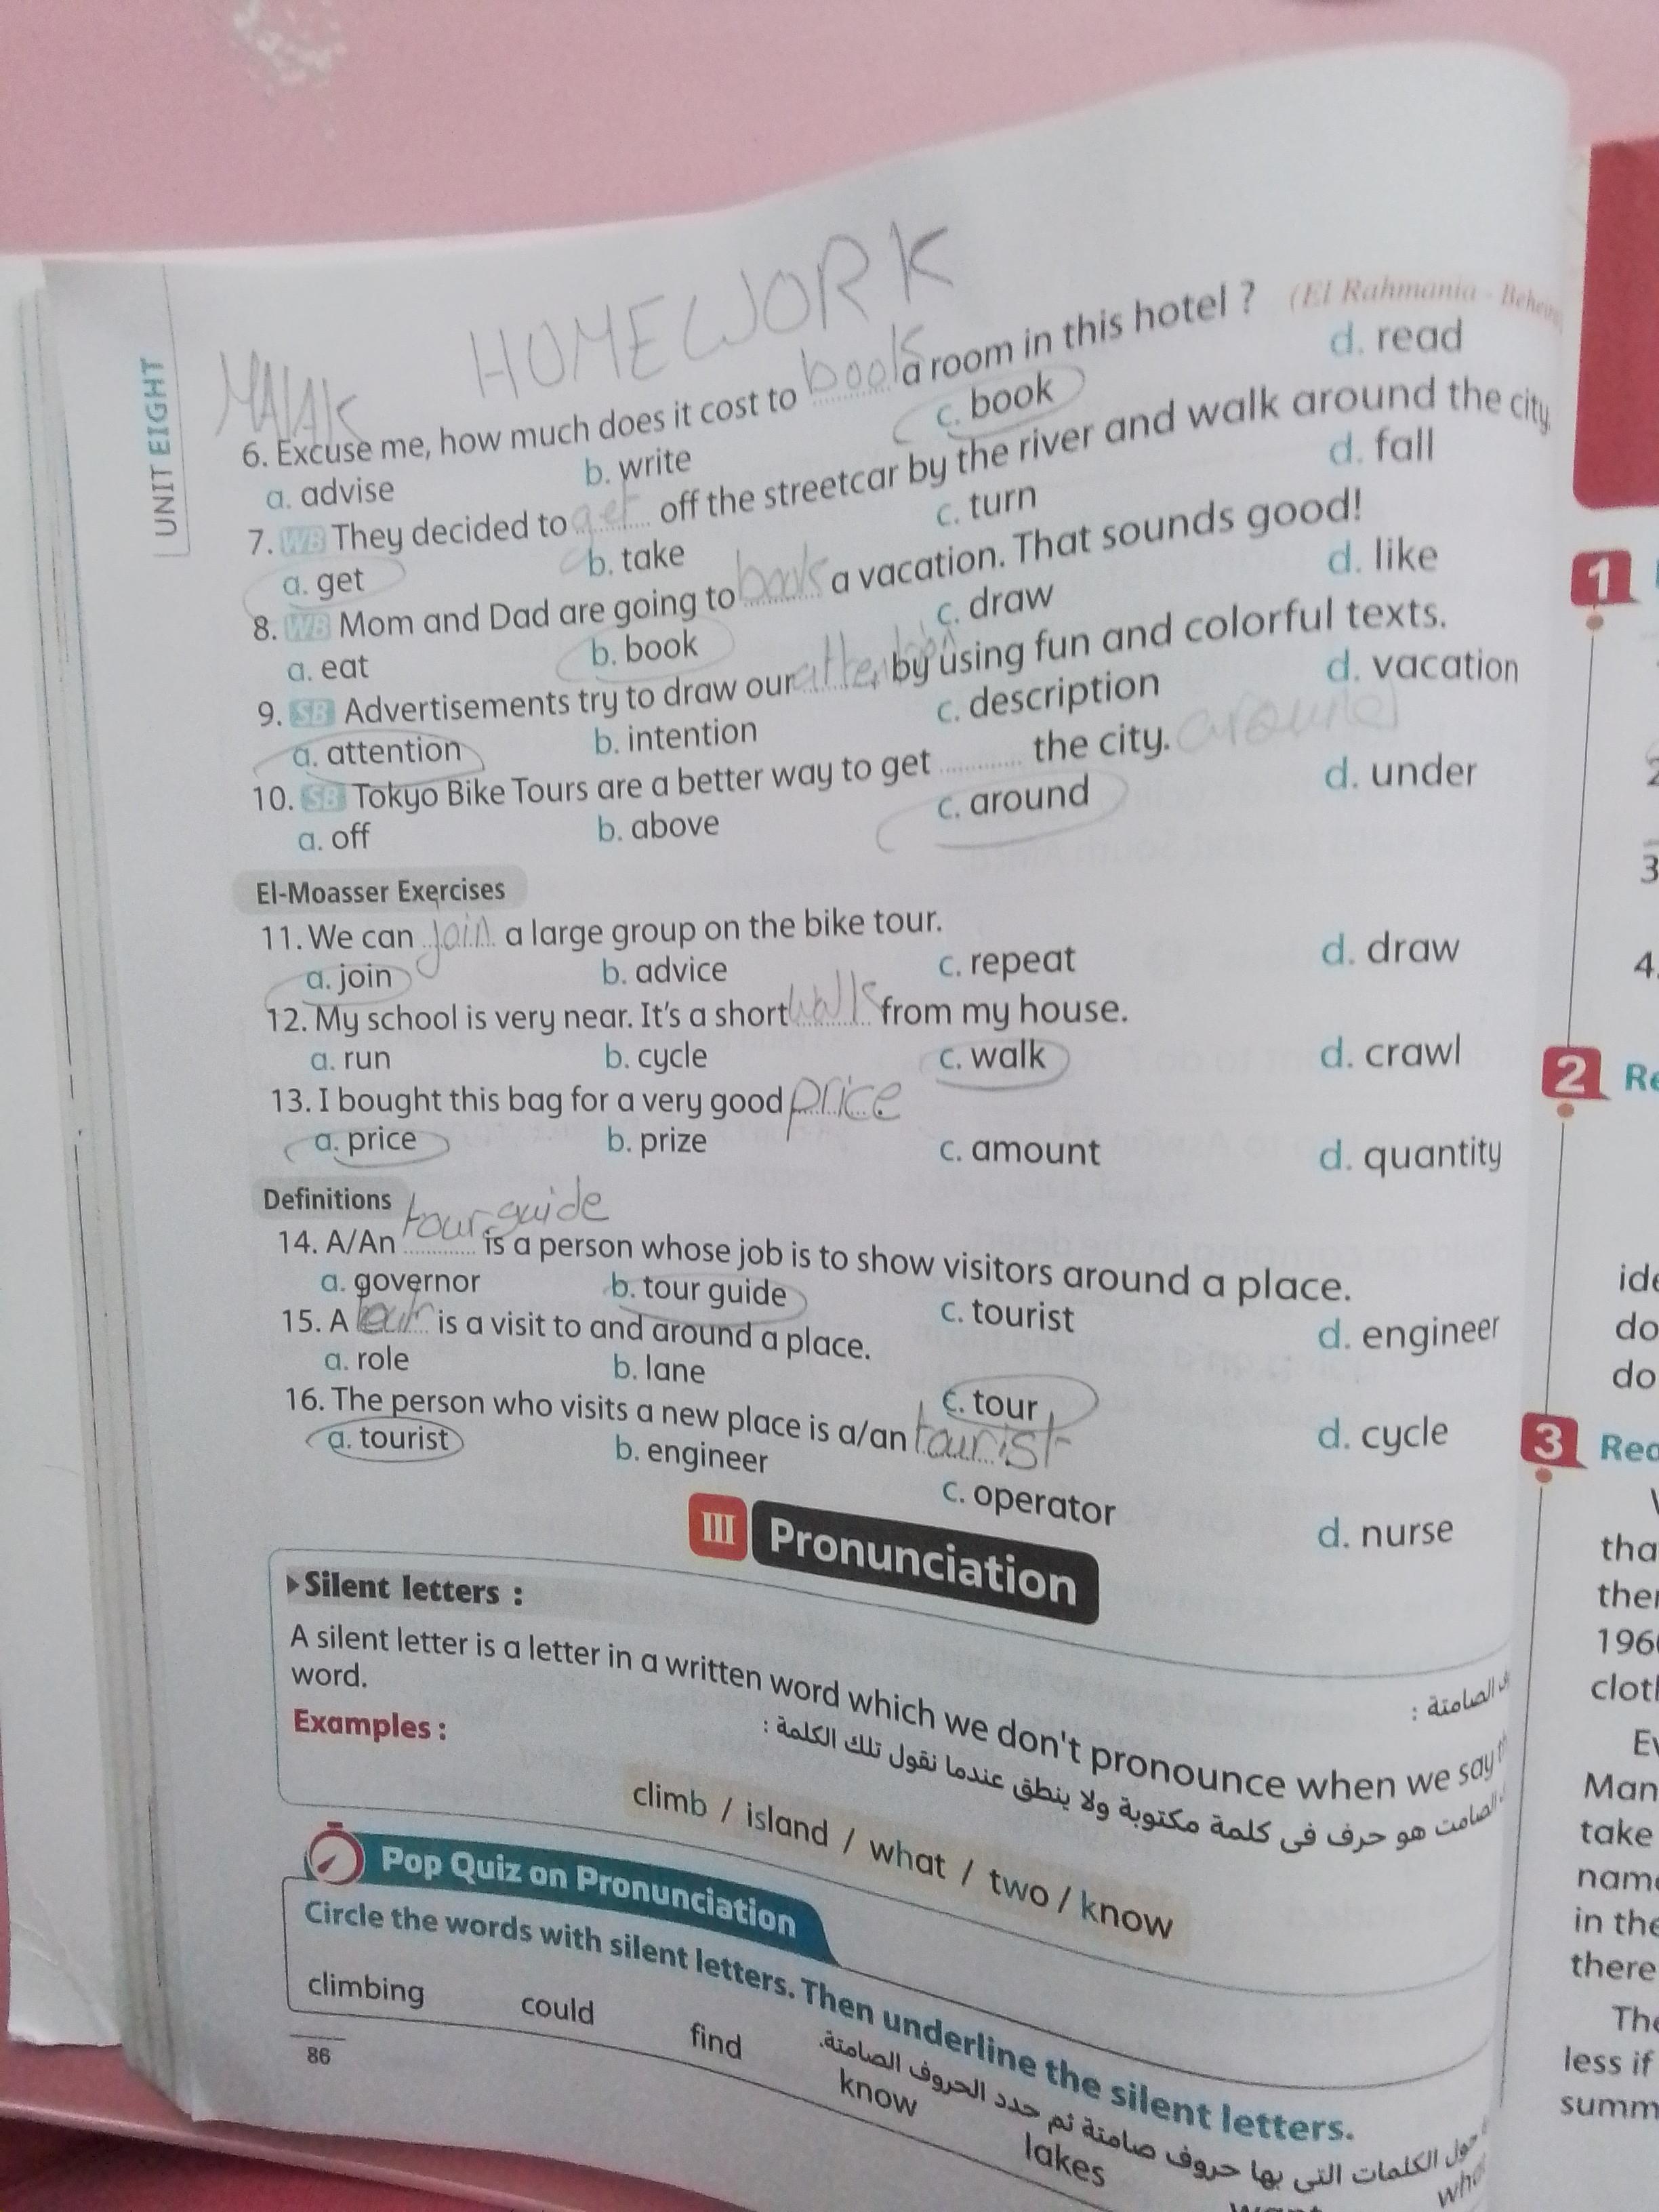 HOMEWORK
MALAK
UNIT EIGHT
6. Excuse me, how much does it cost to book a room in this hotel ? (El Rahmania -
a. advise b. write c. book d. read
7. WB They decided to get off the streetcar by the river and walk around the city.
a. get b. take c. turn d. fall
8. WB Mom and Dad are going to book a vacation. That sounds good!
a. eat b. book c. draw d. like
9. SB Advertisements try to draw our attention by using fun and colorful texts.
a. attention b. intention c. description d. vacation
10. SB Tokyo Bike Tours are a better way to get ............ the city. around
a. off b. above c. around d. under
El-Moasser Exercises
11. We can join a large group on the bike tour.
a. join b. advice c. repeat d. draw
12. My school is very near. It's a short walk from my house.
a. run b. cycle c. walk d. crawl
13. I bought this bag for a very good price.
a. price b. prize c. amount d. quantity
Definitions
tour guide
14. A/An ............ is a person whose job is to show visitors around a place.
a. governor b. tour guide c. tourist d. engineer
15. A tour is a visit to and around a place.
a. role b. lane c. tour d. cycle
16. The person who visits a new place is a/an tourist
a. tourist b. engineer c. operator d. nurse
III Pronunciation
Silent letters :
الصامتة :
A silent letter is a letter in a written word which we don't pronounce when we say
word.
الصامت هو حرف فى كلمة مكتوبة ولا ينطق عندما نقول تلك الكلمة :
Examples :
climb / island / what / two / know
Pop Quiz on Pronunciation
Circle the words with silent letters. Then underline the silent letters.
حول الكلمات التى بها حروف صامتة ثم حدد الحروف الصامتة.
climbing could find know lakes
86
1
2
3
4.
2 Re
ide
do
do
3 Rea
tha
ther
196
clot
Ev
Man
take
name
in the
there
The
less if
summ